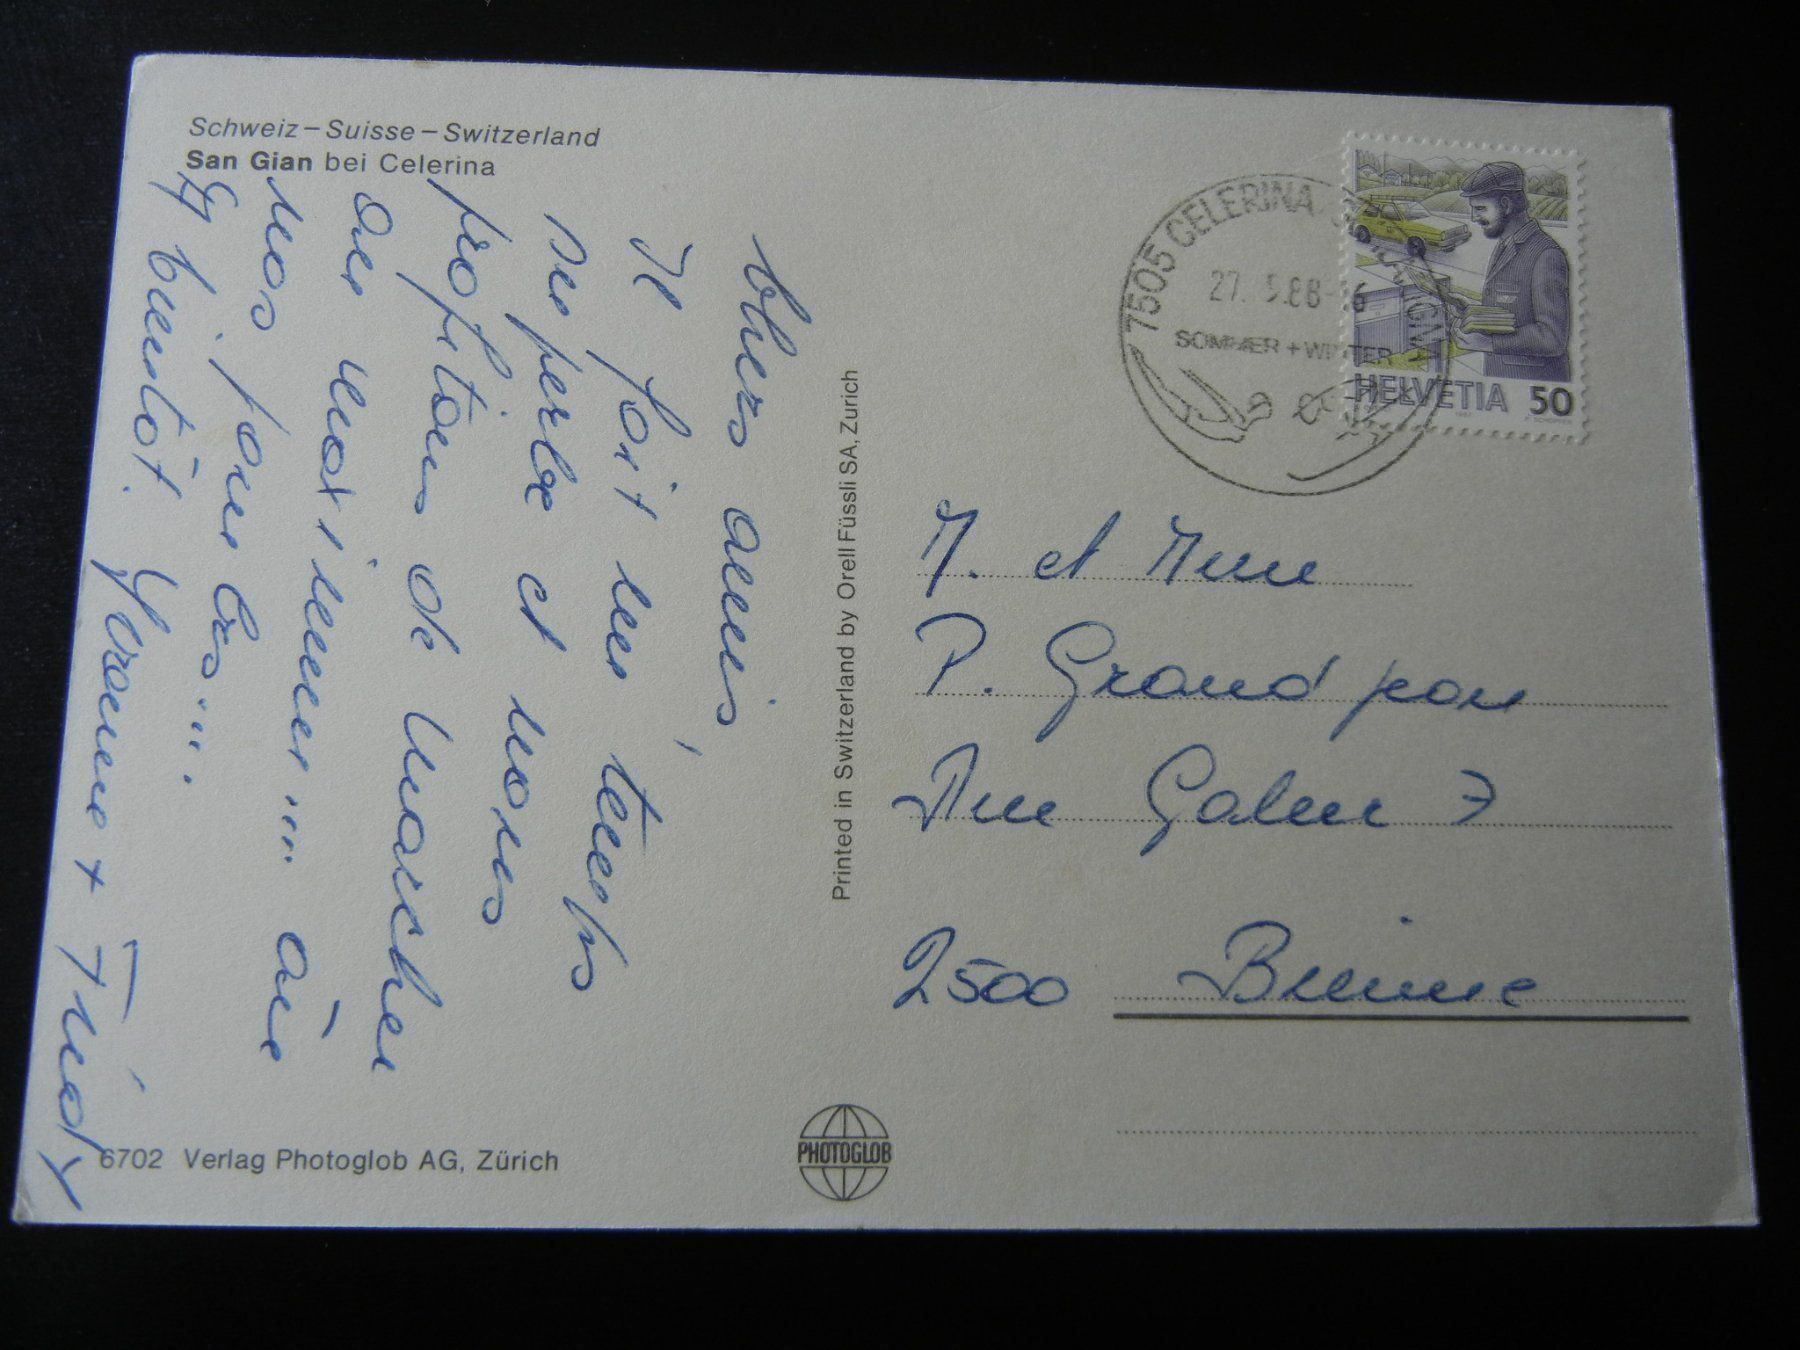 Schweiz – Suisse – Switzerland
San Gian bei Celerina
Chers amis,
Il fait un temps
superbe et nous
profitons de marcher
au maximum... au
nos jambes....
A bientôt. Yvonne + Frédy
Printed in Switzerland by Orell Füssli SA, Zürich
7505 CELERINA
27. 5.88- 6
SOMMER + WINTER
HELVETIA 50
M. et Mme
P. Grandjean
Rue Gabu 7
2500 Bienne
6702 Verlag Photoglob AG, Zürich
PHOTOGLOB